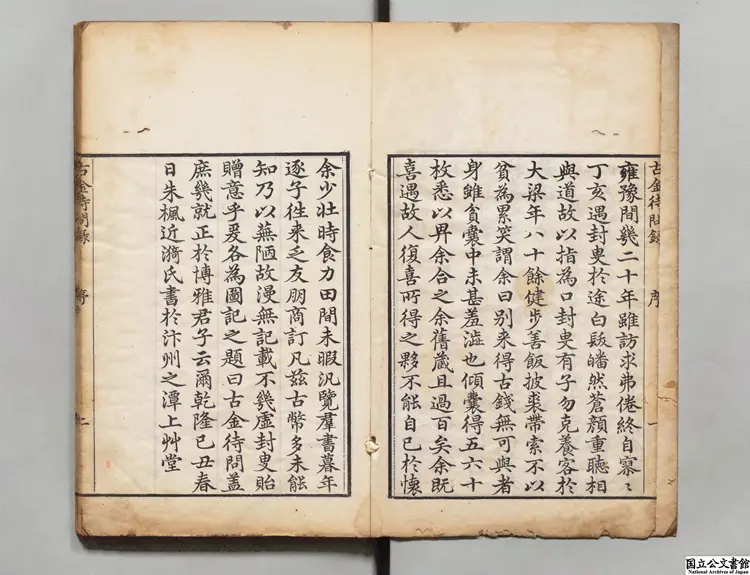 古金待問錄 序 一
雍豫間幾二十年雖訪求弗倦終自寥〻
丁亥遇封叟於途白鬍皤然蒼顏重聽相
與道故以指為口封叟有子勿克養客於
大梁年八十餘健步善飯披裘帶索不以
貧為累笑謂余曰別來得古錢無可與者
身雖貧囊中未甚羞澁也傾囊得五六十
枚悉以畀余合之余舊藏且過百矣余既
喜遇故人復喜所得之夥不能自已於懷
余少壯時食力田間未暇汎覽羣書暮年
逐子徃來乏友朋商訂凡茲古幣多未能
知乃以蕪陋故漫無記載不幾虛封叟貽
贈意乎爰各為圖記之題曰古金待問蓋
庶幾就正於博雅君子云爾乾隆己丑春
日朱楓近漪氏書於汴州之潭上艸堂
古金待問錄 序 二
国立公文書館
National Archives of Japan